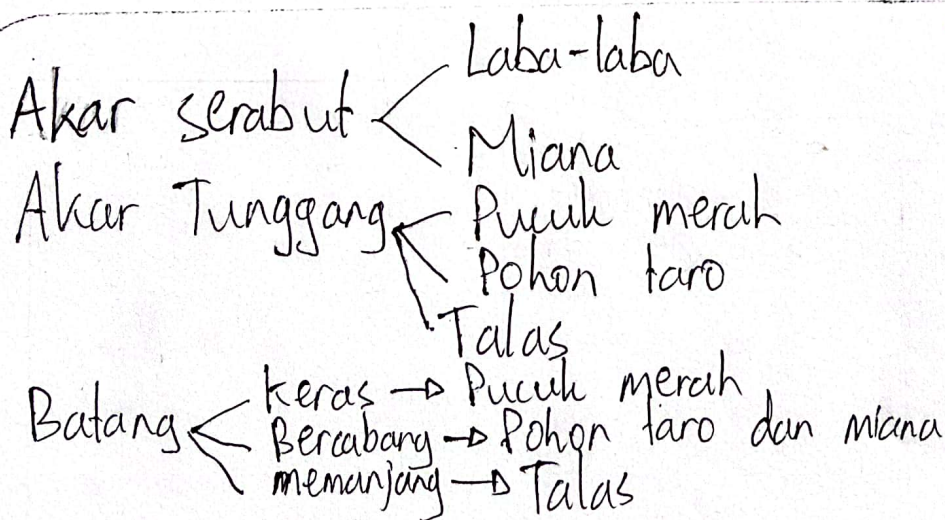 Laba-laba
Akar serabut
Miana
Akar Tunggang
Pucuk merah
Pohon taro
Talas
Batang
Keras → Pucuk merah
Bercabang → Pohon taro dan miana
memanjang → Talas